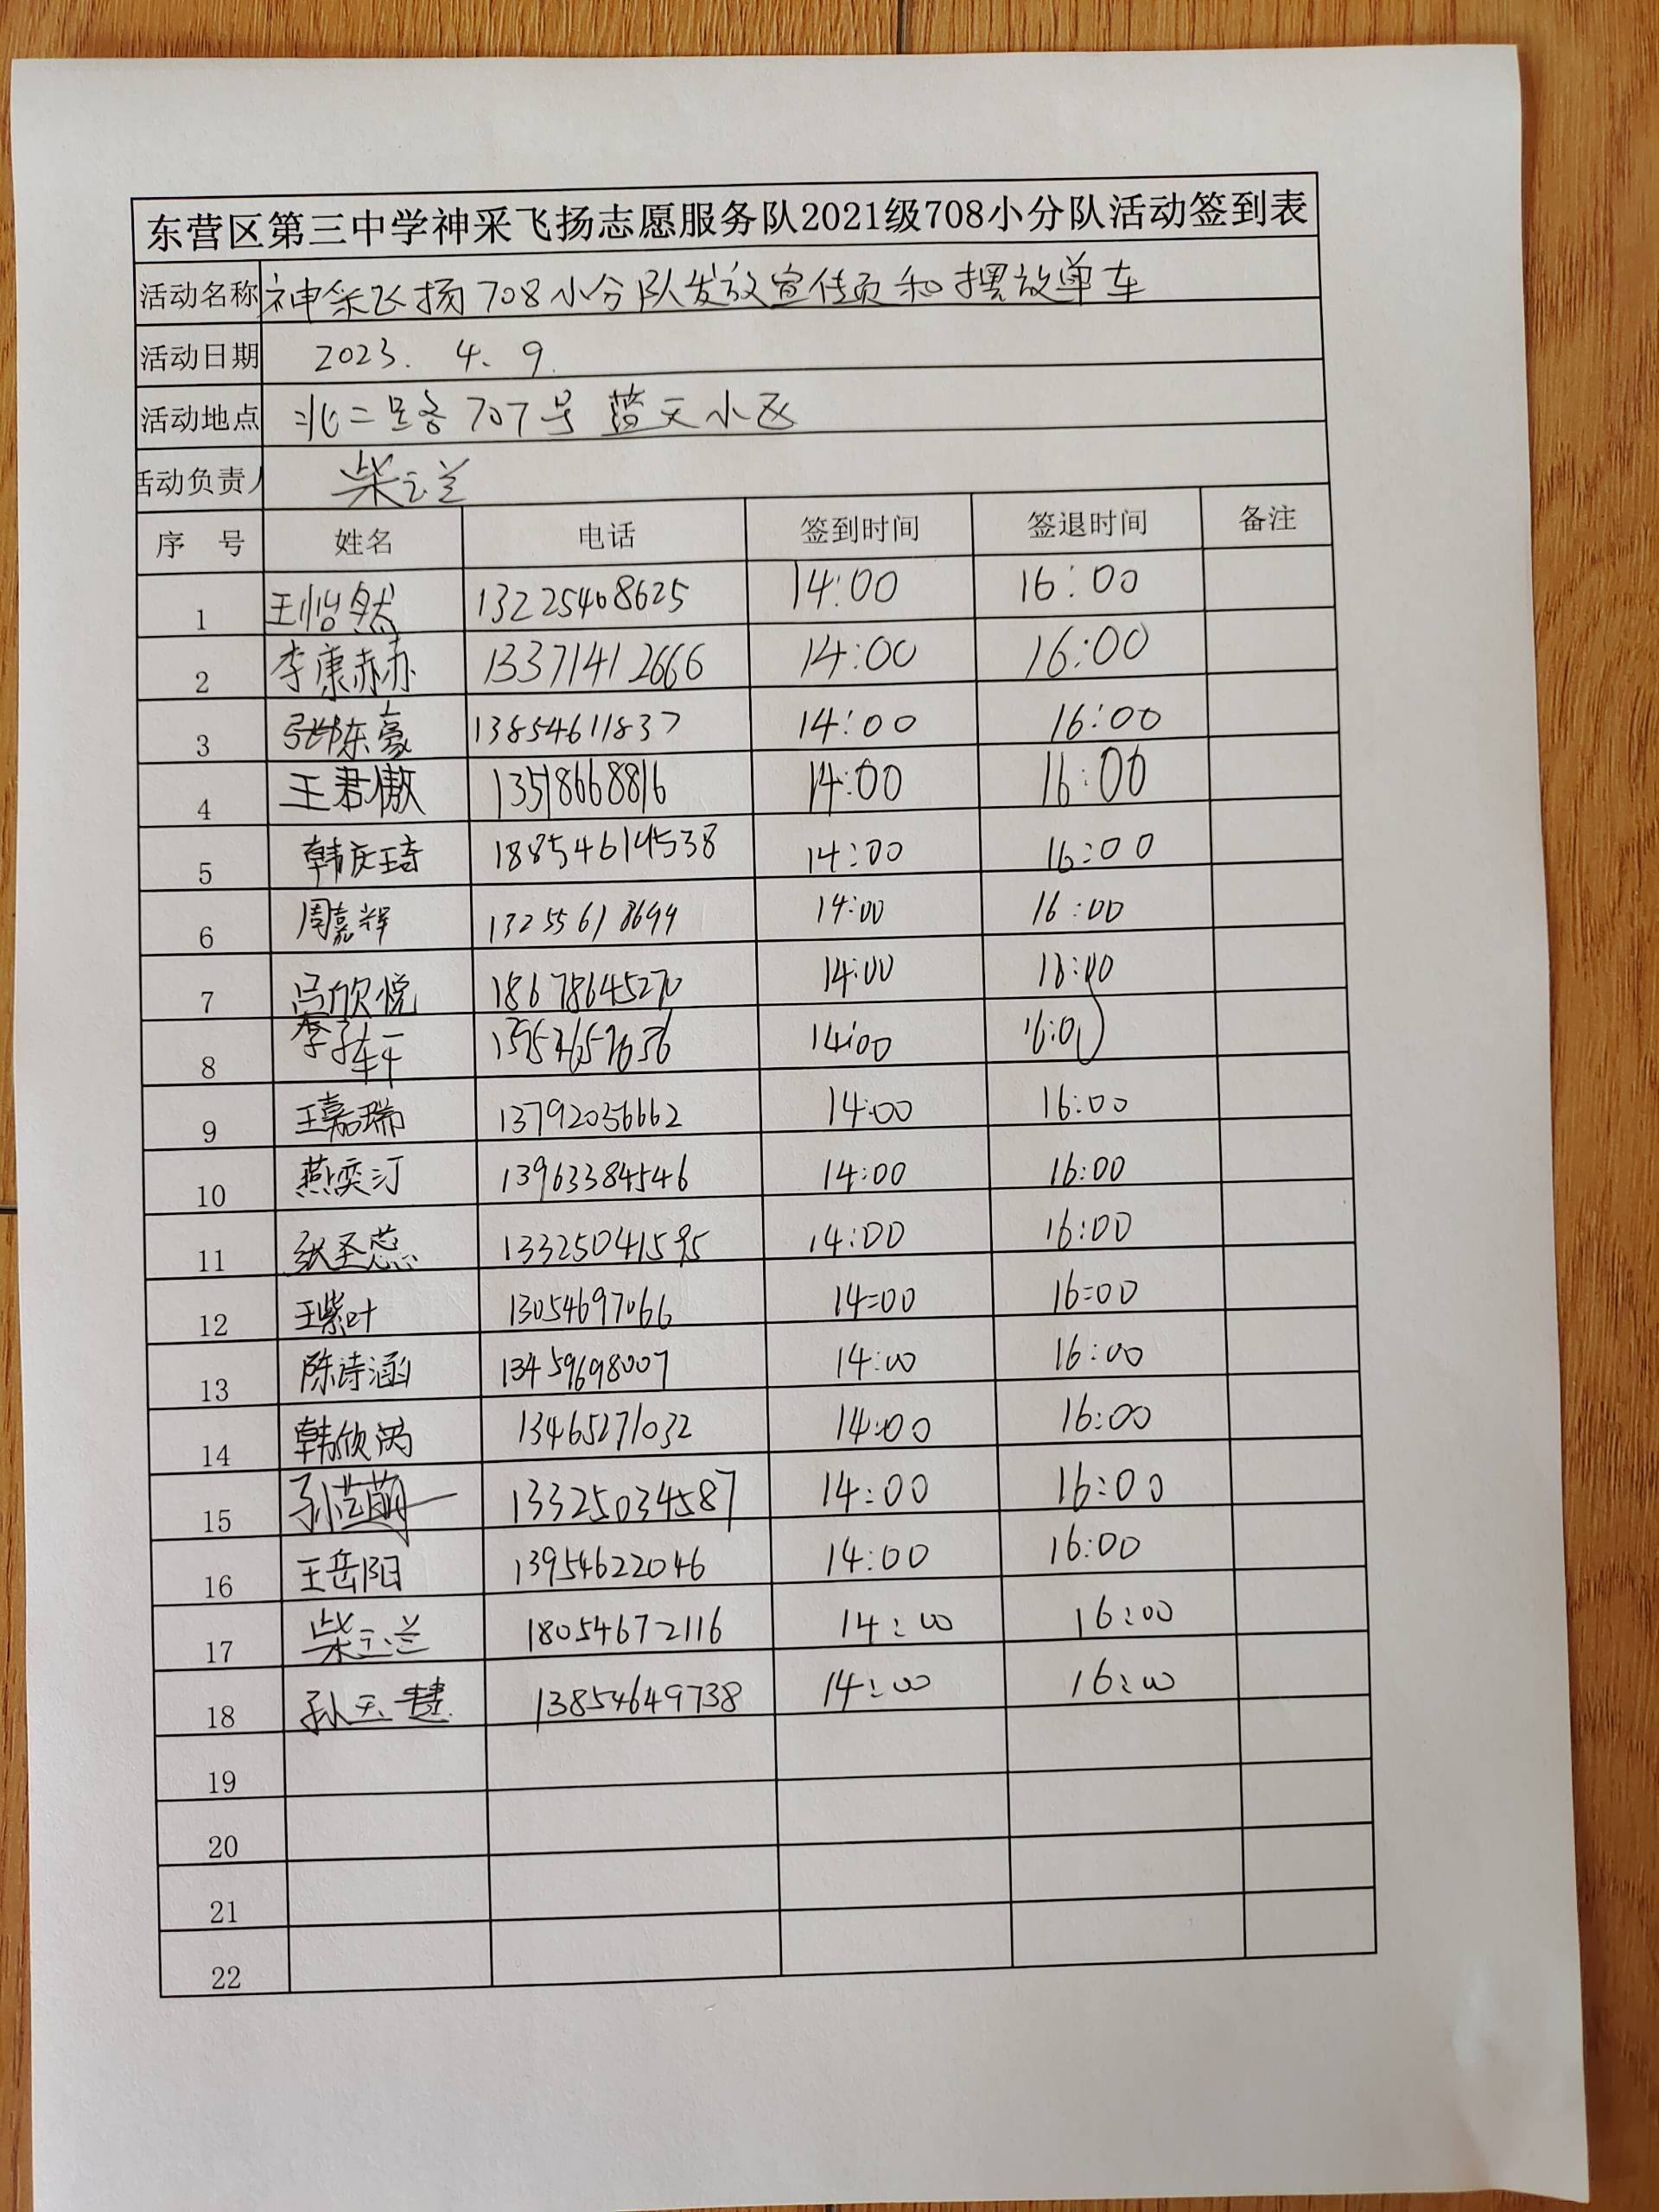 东营区第三中学神采飞扬志愿服务队2021级708小分队活动签到表
活动名称 神采飞扬708小分队发放宣传页和摆放单车
活动日期 2023. 4. 9.
活动地点 北二路 707号 蓝天小区
活动负责人 柴云兰
序 号 姓名 电话 签到时间 签退时间 备注
1 王怡然 13225468625 14:00 16:00
2 李康赫 13371412666 14:00 16:00
3 张陈豪 13854611837 14:00 16:00
4 王君傲 13518668816 14:00 16:00
5 韩庆琦 18854614538 14:00 16:00
6 周嘉辉 13255618699 14:00 16:00
7 吕欣悦 18678645270 14:00 16:00
8 李子轩 14:00 16:00
9 王嘉瑞 13792036662 14:00 16:00
10 燕奕汀 13963384546 14:00 16:00
11 张圣蕊 13325041595 14:00 16:00
12 王紫叶 13054697066 14:00 16:00
13 陈诗涵 13459698007 14:00 16:00
14 韩欣 13465271032 14:00 16:00
15 孙艺萌 13325034587 14:00 16:00
16 王岳阳 13954622046 14:00 16:00
17 柴云兰 18054672116 14:00 16:00
18 孙玉慧 13854649738 14:00 16:00
19
20
21
22